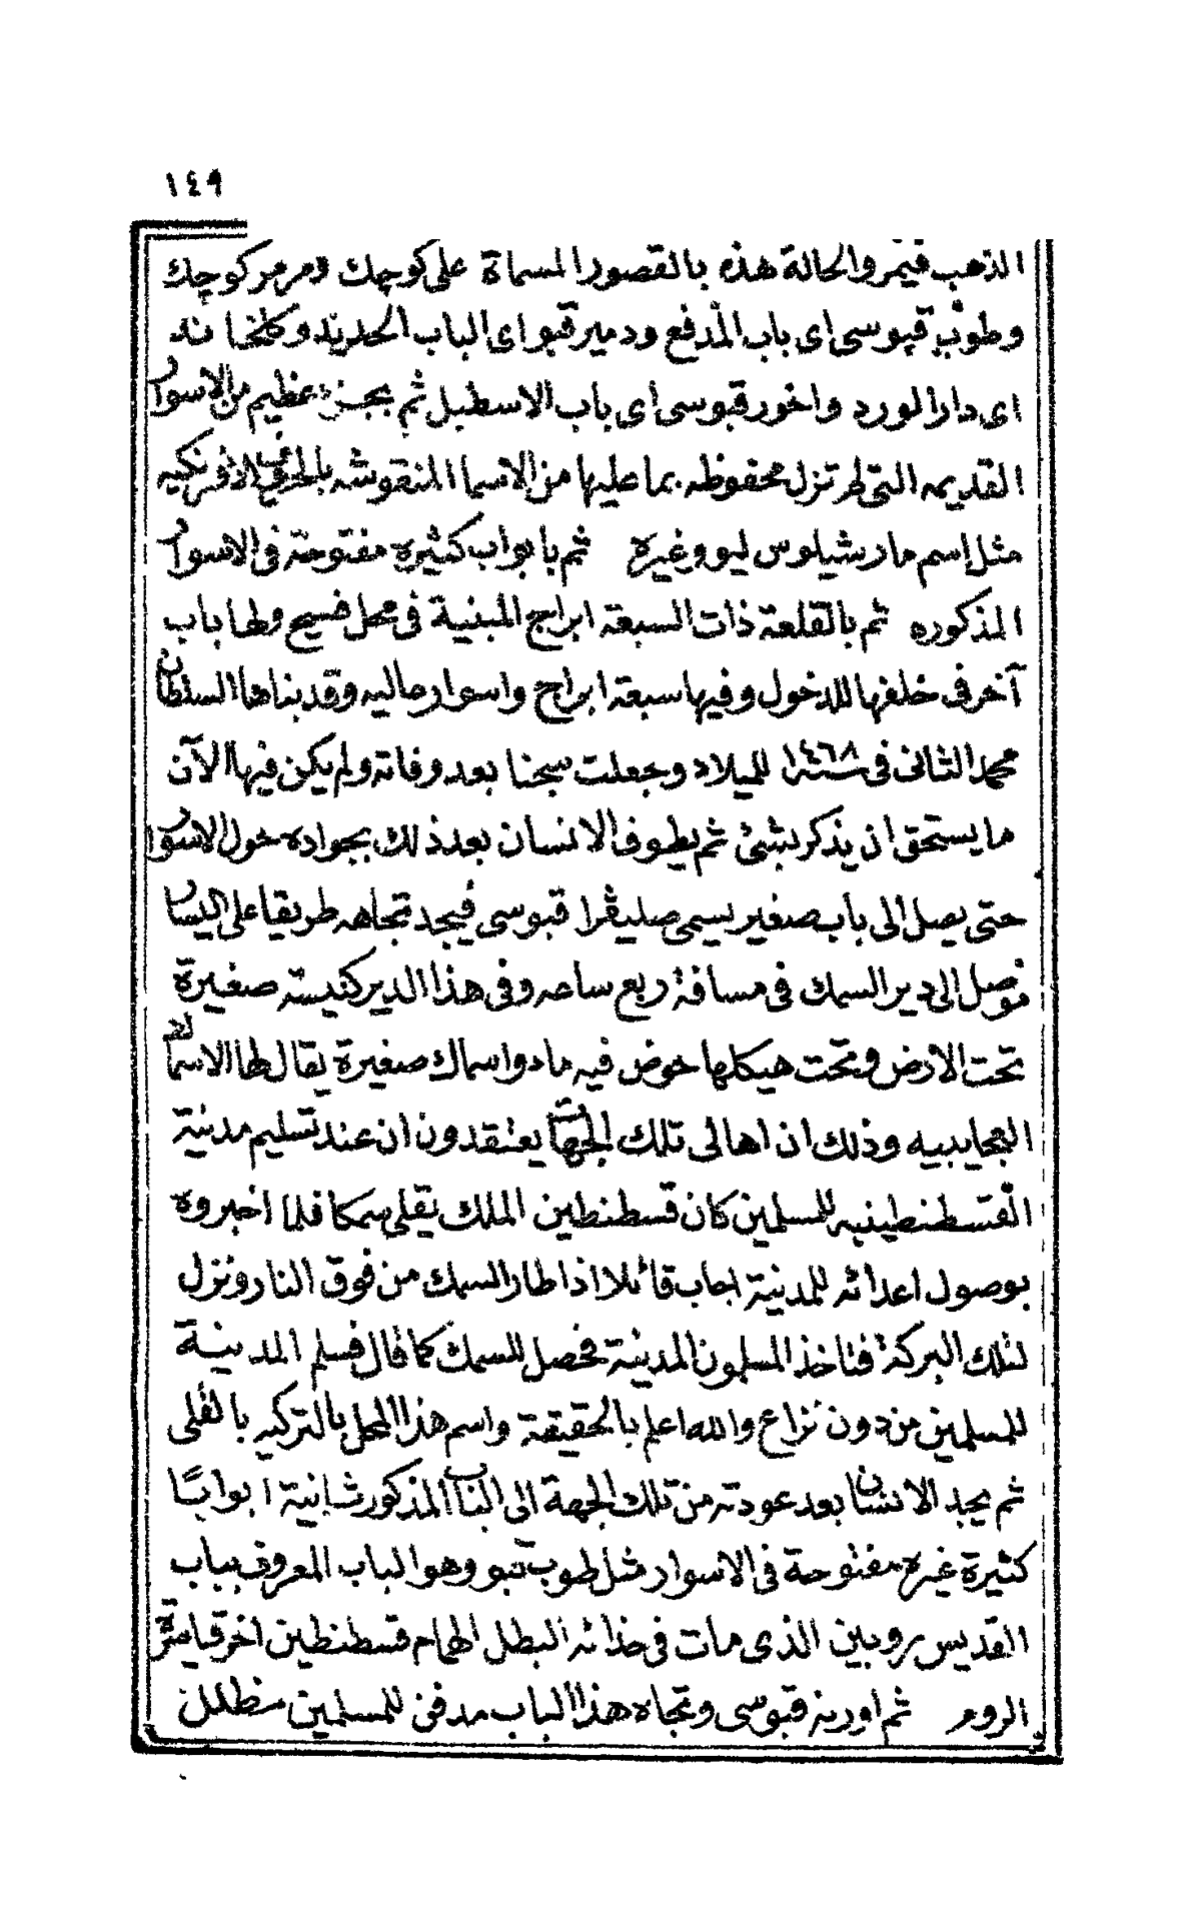 ١٤٩
الذهب فيمر والحالة هذه بالقصور المسماة على كوچك ومرمر كوچك
وطوب قپوسى اى باب المدفع ودمير قپو اى الباب الحديد وكلخانه
اى دار الورد واخور قپوسى اى باب الاسطبل ثم بجزء عظيم من الاسوار
القديمه التى لم تزل محفوظه بما عليها من الاسما المنقوشه بالحرف الافرنكيه
مثل اسم مارشيلوس ليو وغيره ثم بابواب كثيره مفتوحة فى الاسوار
المذكوره ثم بالقلعة ذات السبعة ابراج المبنية فى محل فسيح ولها باب
آخر فى خلفها للدخول وفيها سبعة ابراج واسوار عاليه وقد بناها السلطان
محمد الثانى فى سنة ١٤٦٨ للميلاد وجعلت سجنا بعد وفاته ولم يكن فيها الآن
ما يستحق ان يذكر بشئ ثم يطوف الانسان بعد ذلك بجواده حول الاسوار
حتى يصل الى باب صغير يسمى صليڤرا قپوسى فيجد تجاهه طريقا على اليسار
موصل الى دير السمك فى مسافة ربع ساعه وفى هذا الدير كنيسة صغيرة
تحت الارض وتحت هيكلها حوض فيه ماء واسماك صغيرة يقال لها الاسماك
العجايبيه وذلك ان اهالى تلك الجهات يعتقدون ان عند تسليم مدينة
القسطنطينيه للمسلمين كان قسطنطين الملك يقلى سمكا فلما اخبروه
بوصول اعدائه للمدينة اجاب قائلا اذا طار السمك من فوق النار ونزل
لتلك البركة فتاخذ المسلمون المدينة فحصل للسمك كما قال فسلم المدينة
للمسلمين من دون نزاع والله اعلم بالحقيقة واسم هذا المحل بالتركيه بالقلى
ثم يجد الانسان بعد عودته من تلك الجهة الى الباب المذكور ثانية ابوابًا
كثيرة غيره مفتوحة فى الاسوار مثل طوب قپو وهو الباب المعروف بباب
القديس روبين الذى مات فى حذائه البطل الهمام قسطنطين اخر قياصرة
الروم ثم اورنه قپوسى وتجاه هذا الباب مدفن للمسلمين مظلل